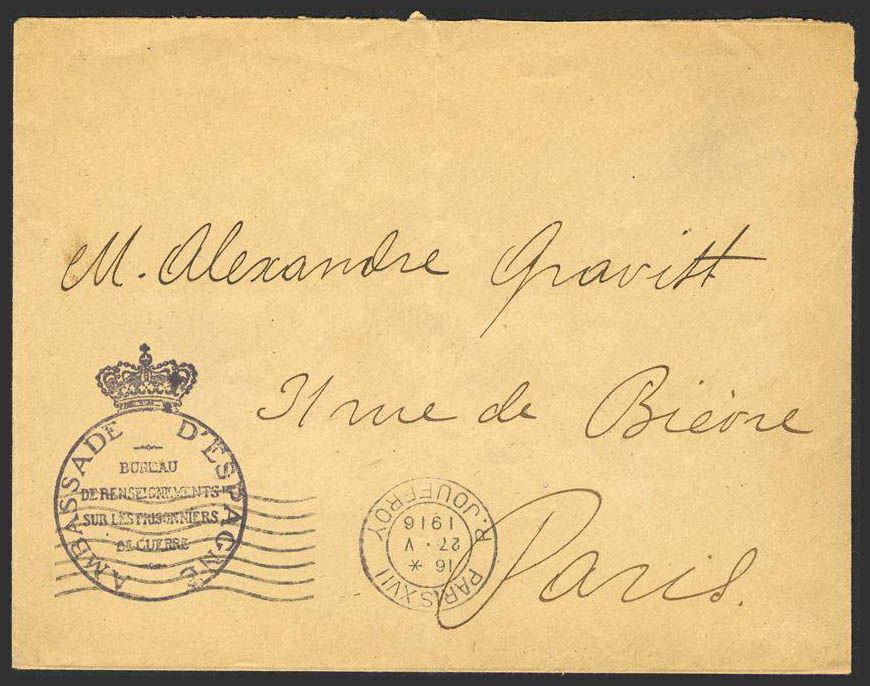 M. Alexandre Gravitt
31 rue de Bièvre
Paris.
AMBASSADE D'ESPAGNE
BUREAU
DE RENSEIGNEMENTS
SUR LES PRISONNIERS
DE GUERRE
PARIS XVII
16 *
27 · V
1916
R. JOUFFROY